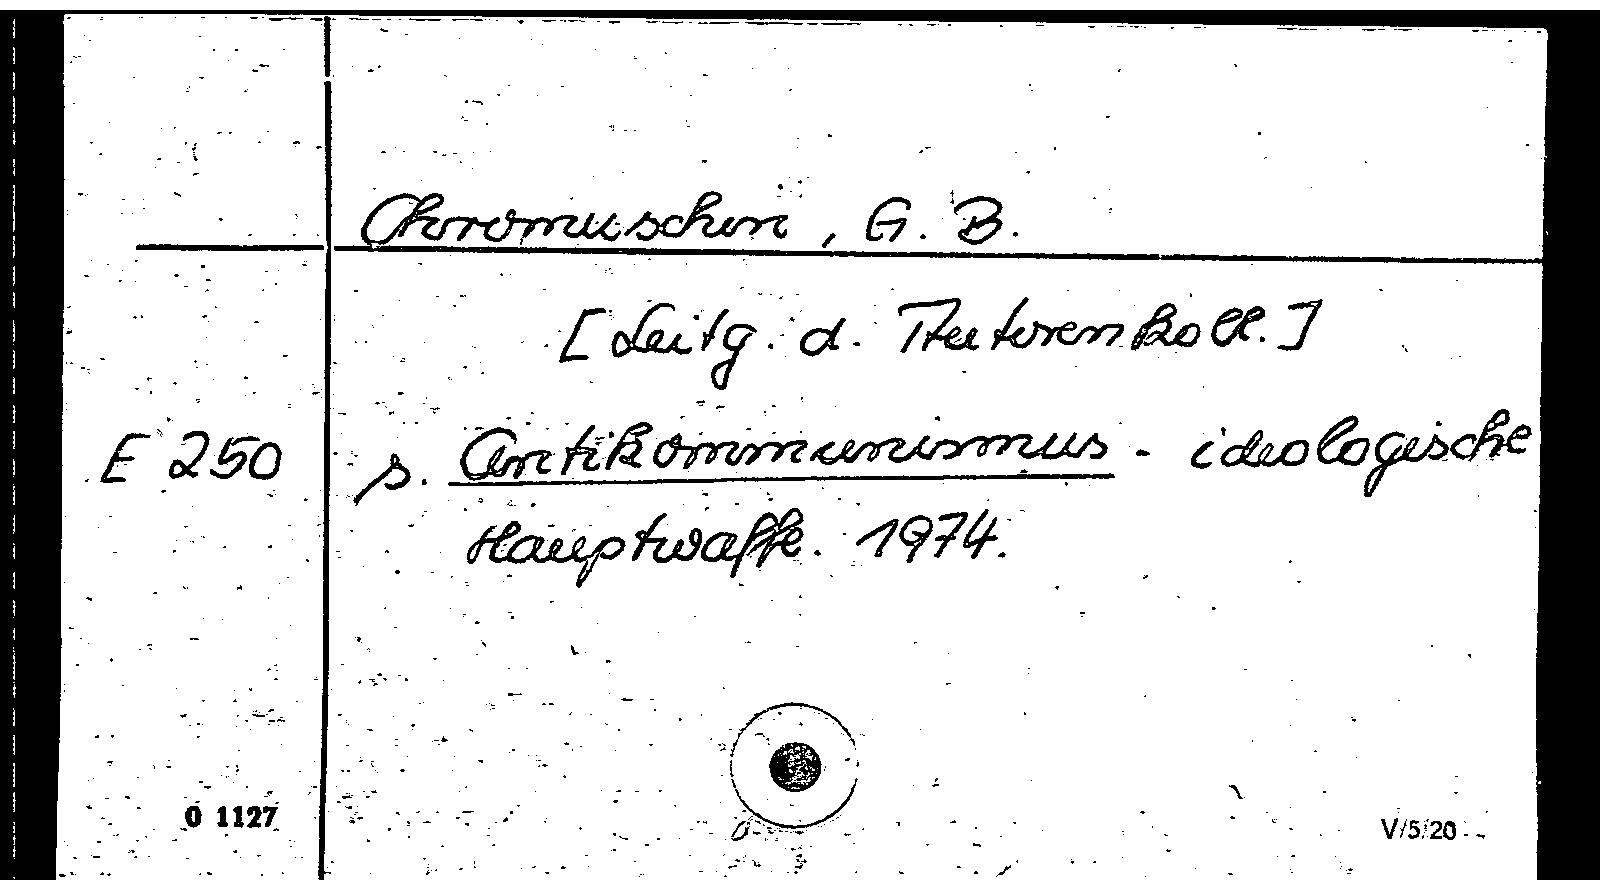 Chromuschin, G. B.
[Leitg. d. Autorenkoll.]
E 250 s. Antikommunismus - ideologische
Hauptwaffe. 1974.
0 1127
V/5/20